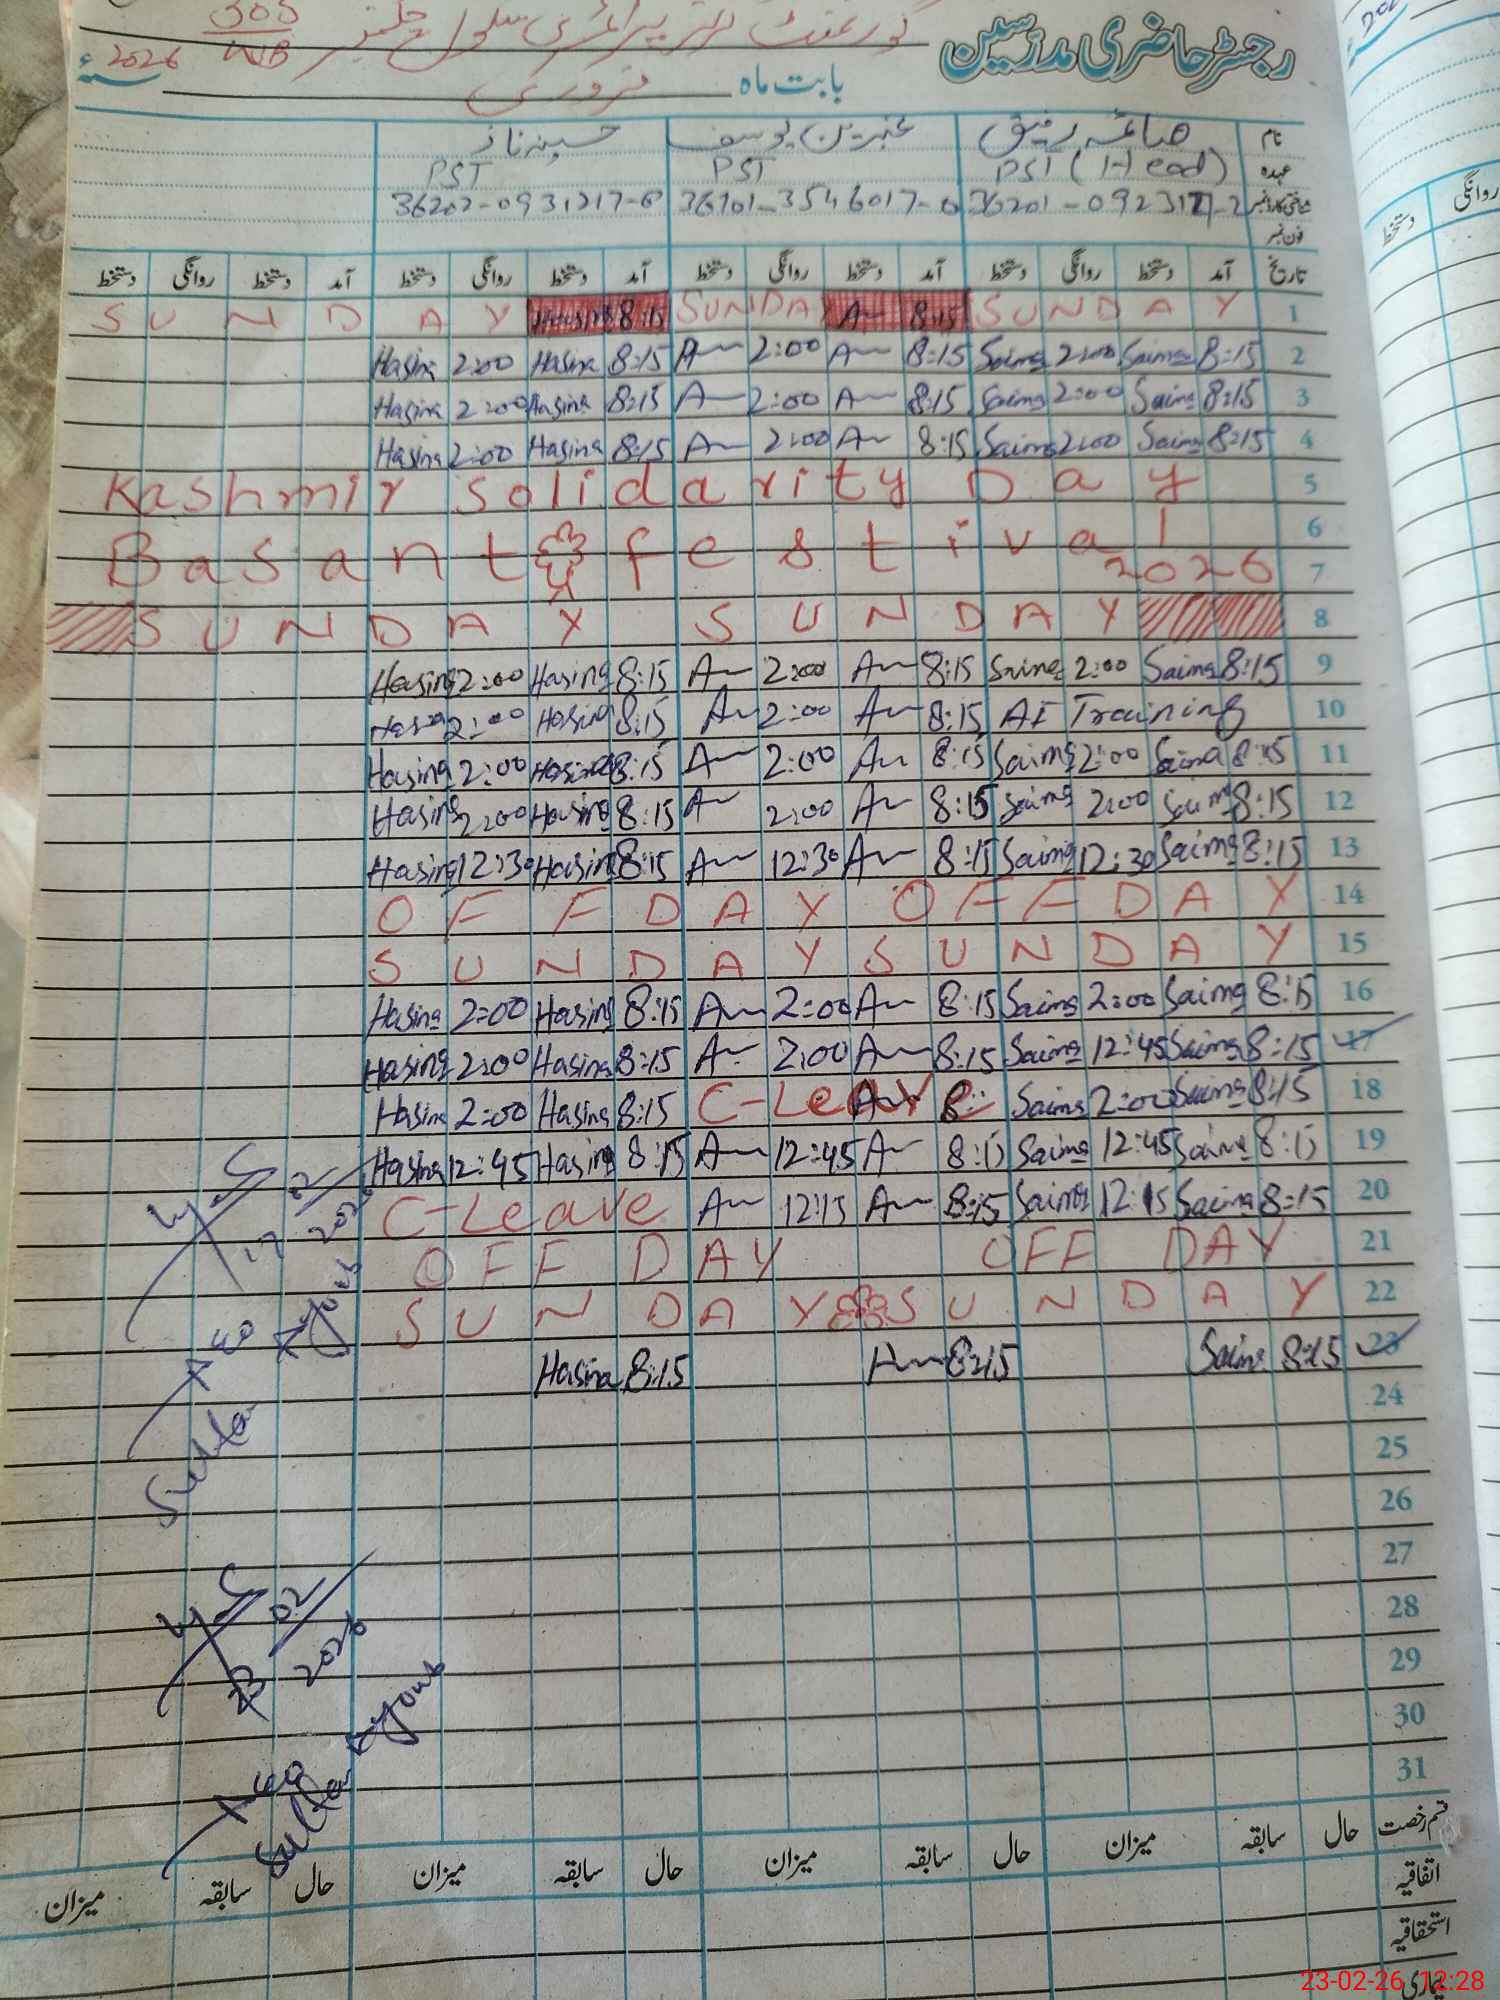 رجسٹر حاضری مدرسین
گورنمنٹ گرلز پرائمری سکول چک نمبر 305/WB
بابت ماہ فروری 2026ء
نام صائمہ رفیق عنبرین یوسف حسینہ ناز
عہدہ PST (Head) PST PST
شناختی کارڈ نمبر 36202-0931217-0
فون نمبر
تاریخ آمد دستخط روانگی دستخط آمد دستخط روانگی دستخط آمد دستخط روانگی دستخط آمد دستخط روانگی دستخط
SUNDAY Hasina 8:15 SUNDAY A 8:15 SUNDAY 1
Hasina 2:00 Hasina 8:15 A 2:00 A 8:15 Saima 2:00 Saima 8:15 2
Hasina 2:00 Hasina 8:15 A 2:00 A 8:15 Saima 2:00 Saima 8:15 3
Hasina 2:00 Hasina 8:15 A 2:00 A 8:15 Saima 2:00 Saima 8:15 4
Kashmir Solidarity Day 5
Basant festival 6
2026 7
SUNDAY SUNDAY 8
Hasina 2:00 Hasina 8:15 A 2:00 A 8:15 Saima 2:00 Saima 8:15 9
Hasina 2:00 Hasina 8:15 A 2:00 A 8:15 AI Training 10
Hasina 2:00 Hasina 8:15 A 2:00 A 8:15 Saima 2:00 Saima 8:15 11
Hasina 2:00 Hasina 8:15 A 2:00 A 8:15 Saima 2:00 Saima 8:15 12
Hasina 12:30 Hasina 8:15 A 12:30 A 8:15 Saima 12:30 Saima 8:15 13
OFF DAY OFF DAY 14
SUNDAY SUNDAY 15
Hasina 2:00 Hasina 8:15 A 2:00 A 8:15 Saima 2:00 Saima 8:15 16
Hasina 2:00 Hasina 8:15 A 2:00 A 8:15 Saima 12:45 Saima 8:15 17
Hasina 2:00 Hasina 8:15 C-Leave A 8: Saima 2:00 Saima 8:15 18
Hasina 12:45 Hasina 8:15 A 12:45 A 8:15 Saima 12:45 Saima 8:15 19
C-Leave A 12:15 A 8:15 Saima 12:15 Saima 8:15 20
OFF DAY OFF DAY 21
SUNDAY SUNDAY 22
Hasina 8:15 A 8:15 Saima 8:15 23
24
25
26
27
28
29
30
31
17/02/2026
AEO
Sultan Ayoub
23/02/2026
AEO
Sultan Ayoub
قسم رخصت حال سابقہ میزان حال سابقہ میزان حال سابقہ میزان حال سابقہ میزان
اتفاقیہ
استحقاقیہ
بیماری
روانگی
دستخط
23-02-26, 12:28